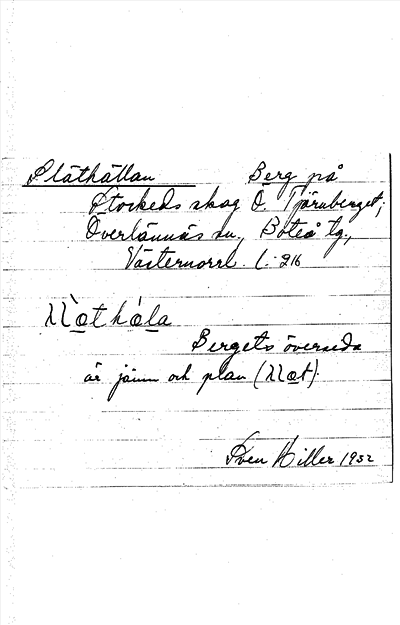 Släthällan Berg på
Stockeds skog Ö. Tjärnberget;
Överlännäs sn, Boteå tg.,
Västernorrl. l.
Bergets översida
är jämn och plan
Sven Hiller 1932